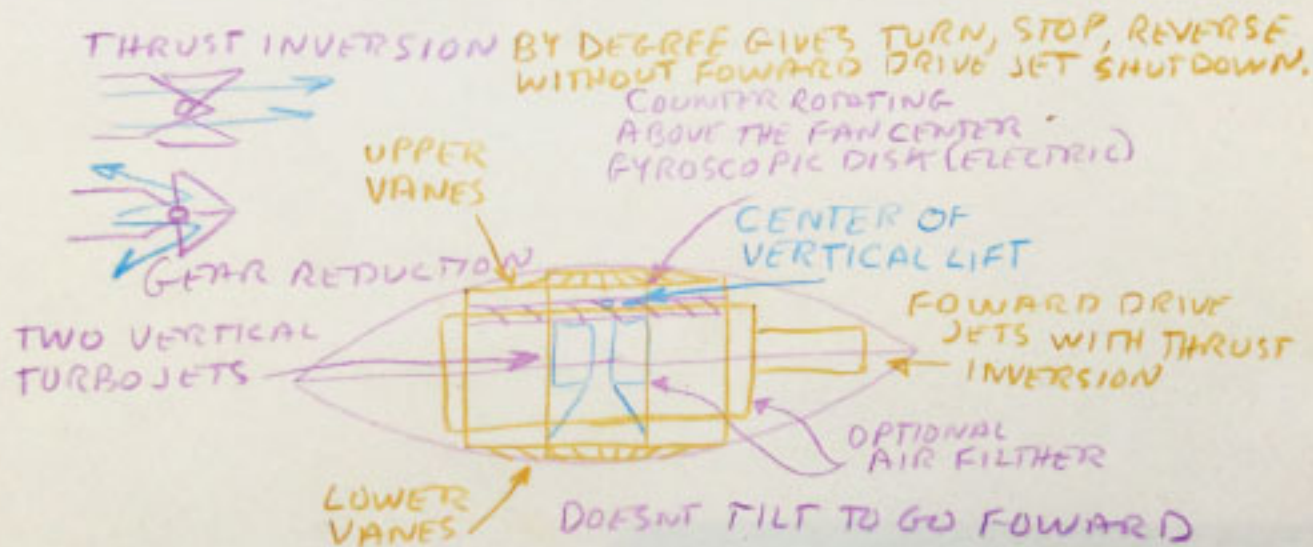 THRUST INVERSION BY DEGREE GIVES TURN, STOP, REVERSE
WITHOUT FOWARD DRIVE JET SHUTDOWN.
COUNTER ROTATING
ABOVE THE FAN CENTER
GYROSCOPIC DISK (ELECTRIC)
UPPER
VANES
CENTER OF
VERTICAL LIFT
GEAR REDUCTION
TWO VERTICAL
TURBOJETS
FOWARD DRIVE
JETS WITH THRUST
INVERSION
OPTIONAL
AIR FILTHER
LOWER
VANES
DOESNT TILT TO GO FOWARD